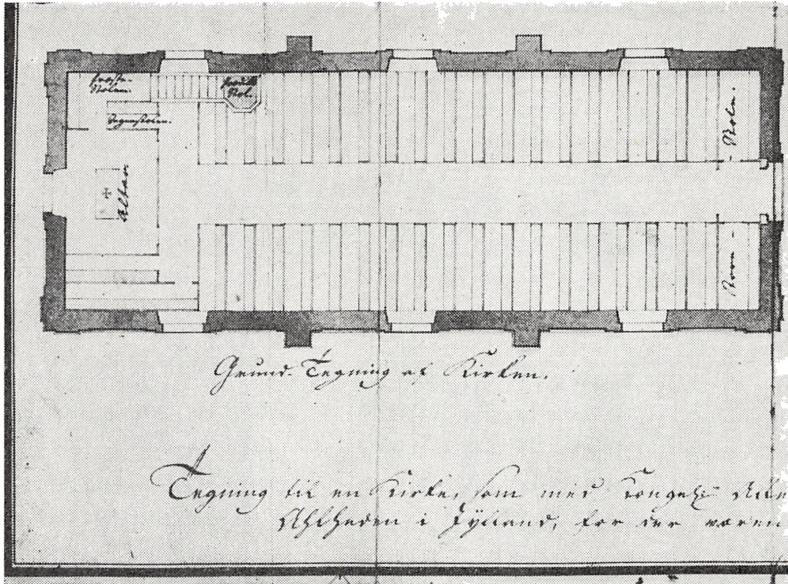 Præste-
Stolen.
Prædike
Stol.
Degnestolen.
Altar
Stole.
Grund-Tegning af Kirken.
Tegning til en Kirke, som med Kongel:
Ahlheden i Jylland, for der væren